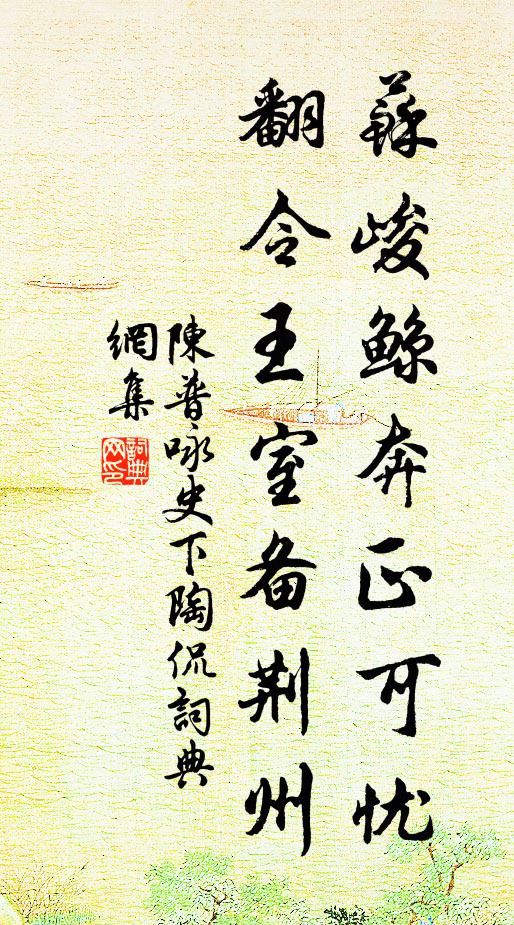 蘇峻鲸奔正可忧
翻令王室备荆州
陳普咏史下陶侃詞典
網集
詞典
网印